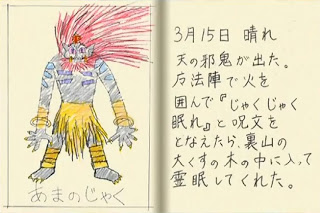 3月15日 晴れ
天の邪鬼が出た。
方法陣で火を
囲んで『じゃくじゃく
眠れ』と呪文を
となえたら、裏山の
大くすの木の中に入って
霊眠してくれた。
あまのじゃく